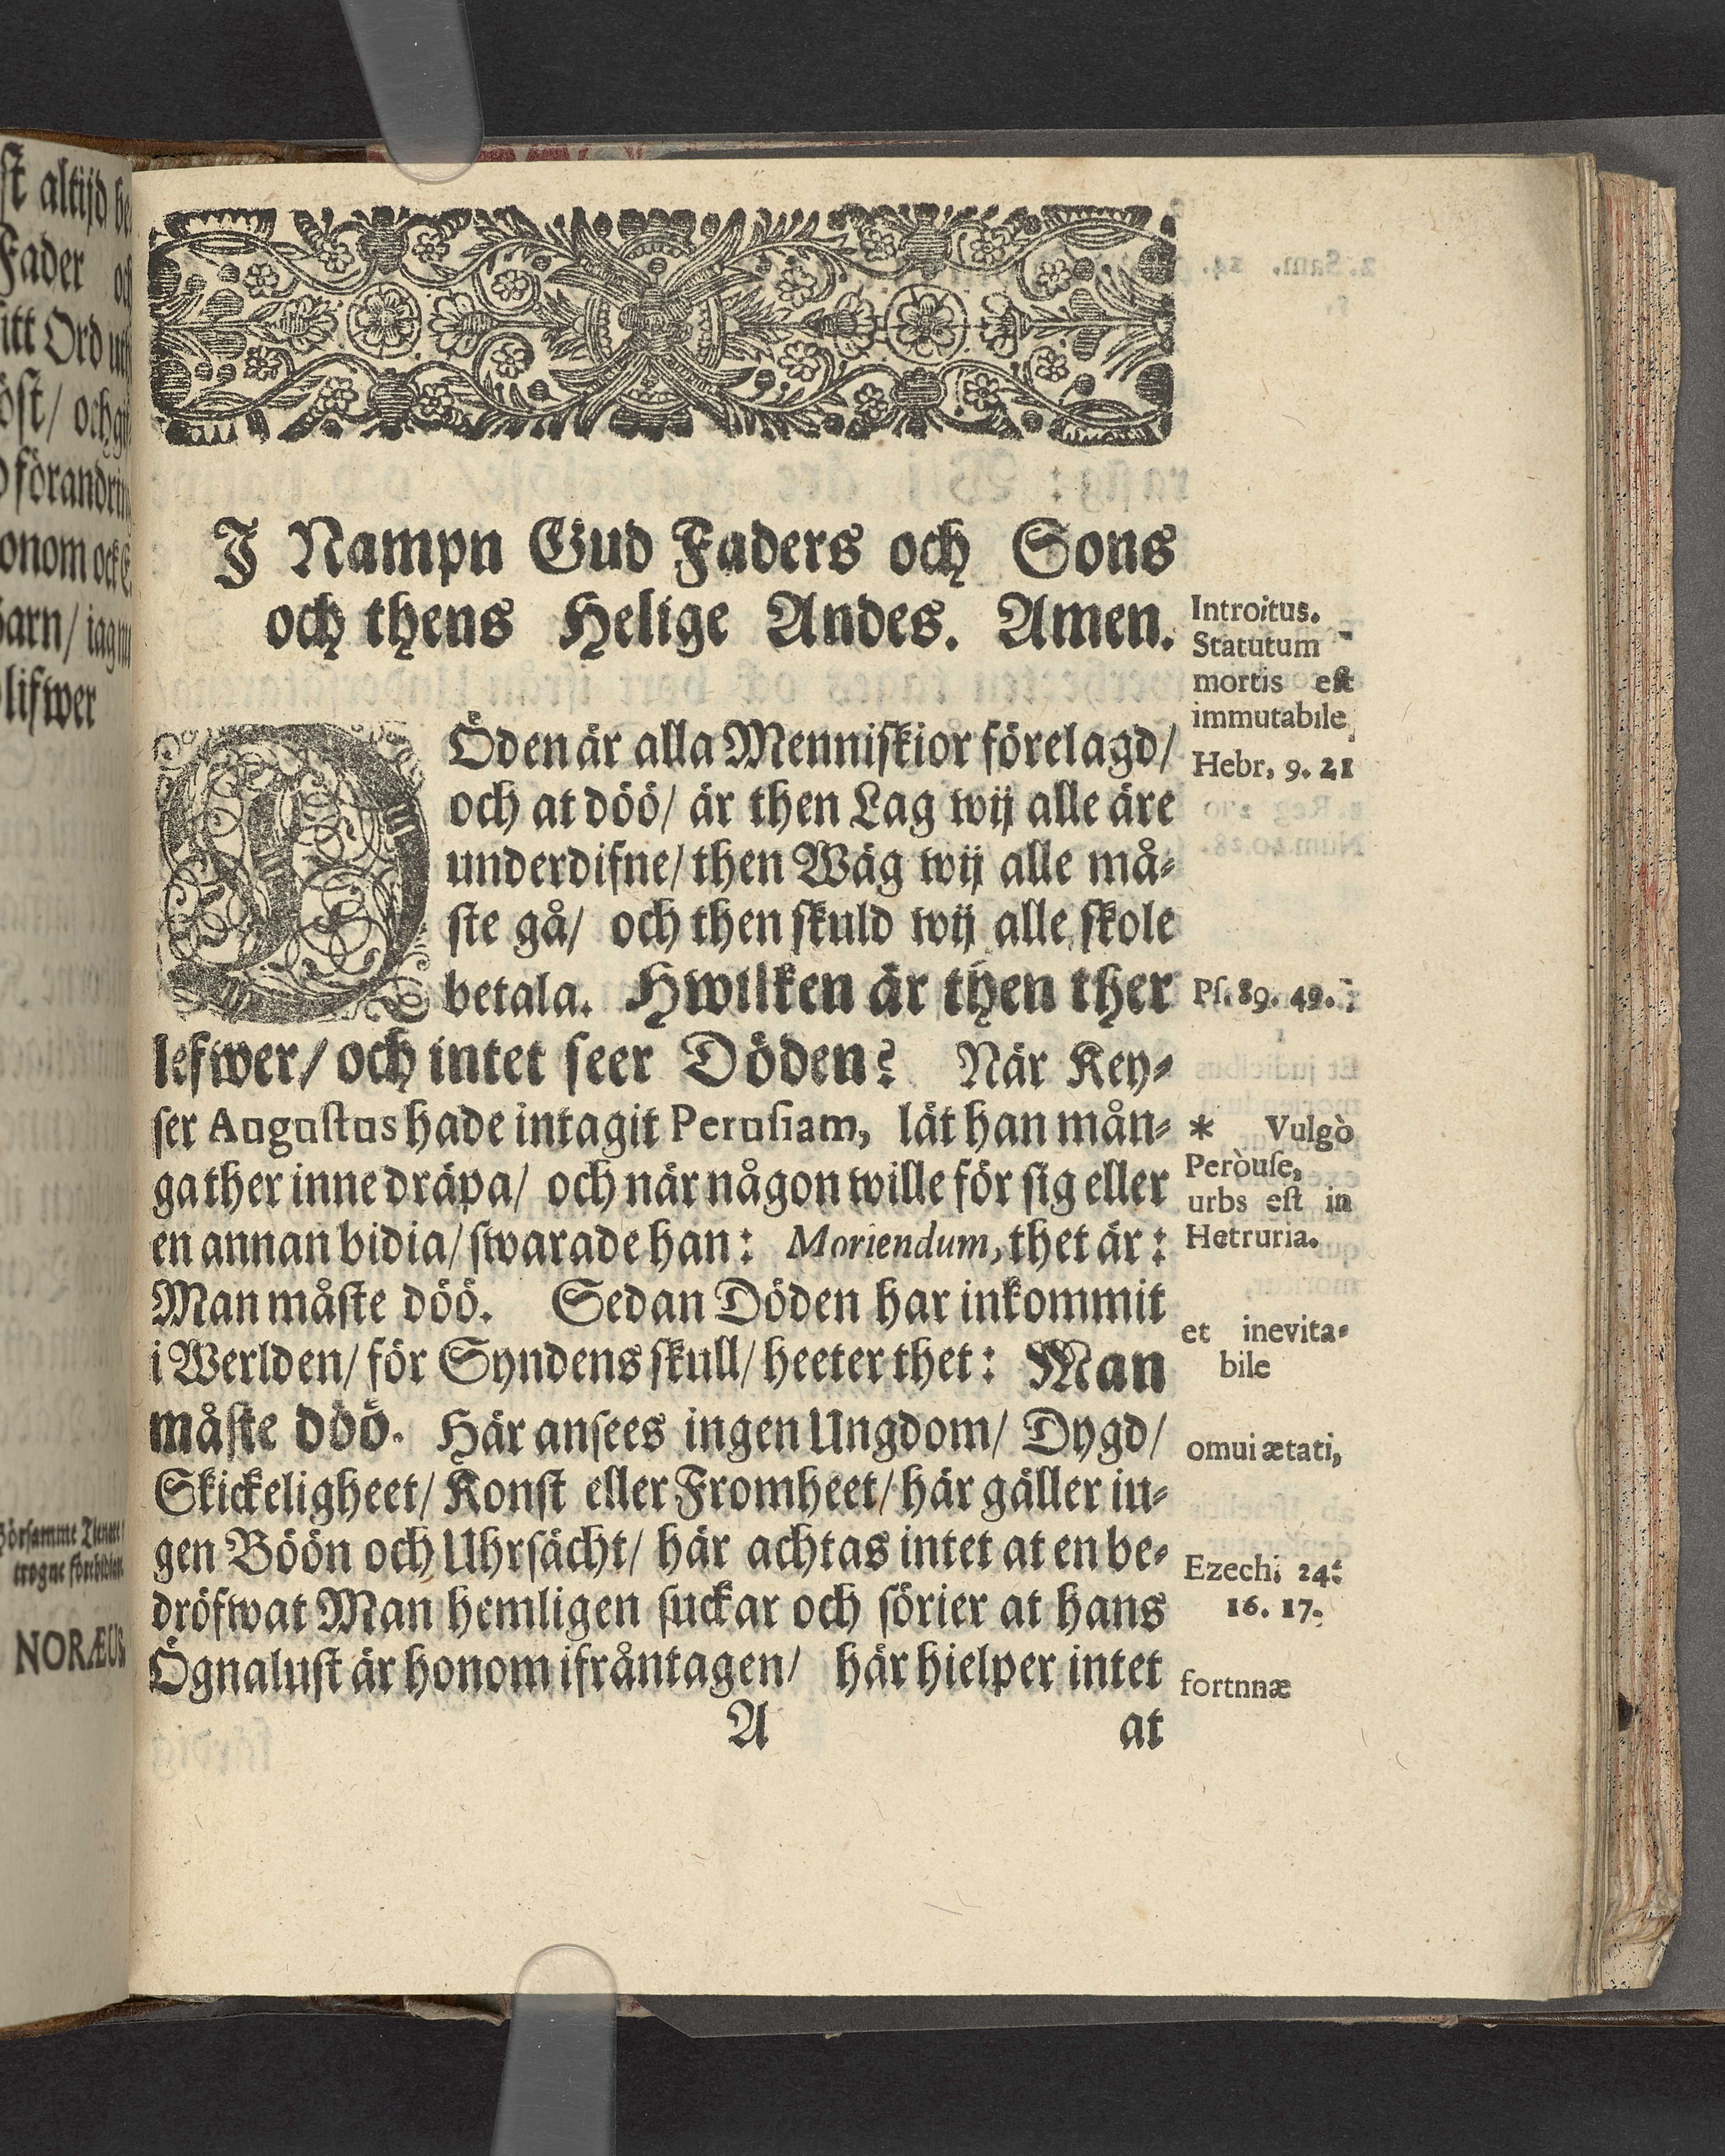 J Nampn Gud Faders och Sons
och thens Helige Andes. Amen.
DÖden är alla Menniſkior förelagd/
och at döö/ är then Lag wij alle äre
underdifne/ then Wäg wij alle må⸗
ſte gå/ och then ſkuld wij alle ſkole
betala. Hwilken är then ther
lefwer/ och intet ſeer Döden? När Key⸗
ſer Auguſtus hade intagit Peruſiam, lät han mån⸗
ga ther inne dräpa/ och när någon wille för ſig eller
en annan bidia/ ſwarade han: Moriendum, thet är:
Man måſte döö. Sedan Döden har inkommit
i Werlden/ för Syndens ſkull/ heeter thet: Man
måſte döö. Här anſees ingen Ungdom/ Dygd/
Skickeligheet/ Konſt eller Fromheet/ här gäller in⸗
gen Böön och Uhrſächt/ här achtas intet at en be⸗
dröfwat Man hemligen ſuckar och ſörier at hans
Ögnaluſt är honom ifråntagen/ här hielper intet
A at
Introitus.
Statutum
mortis eſt
immutabile
Hebr, 9. 21
Pſ. 89. 49.
* Vulgò
Peròuſe,
urbs eſt in
Hetruria.
et inevita⸗
bile
omui ætati,
Ezech; 24:
16. 17.
fortnnæ
ſt altijd
Fader
itt Ord
öſt/ och
förandrin
onom ock
barn/ iag
lifwer
NORÆUS